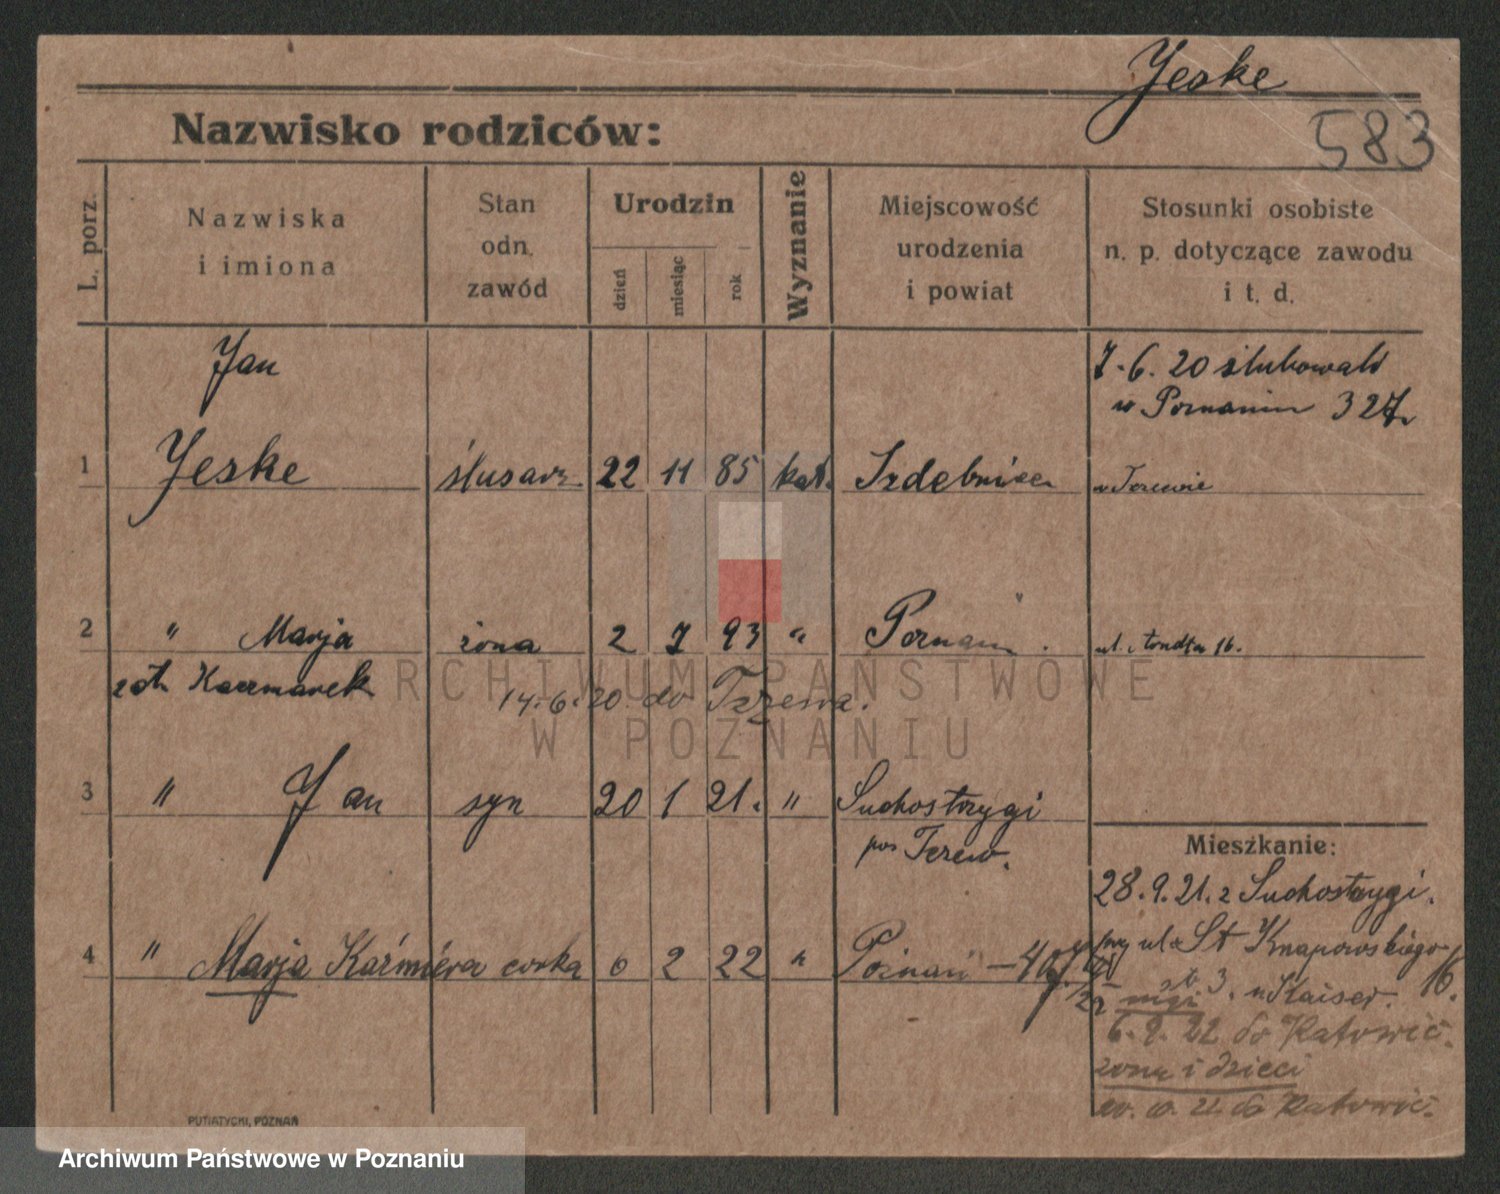 Jeske
583
Nazwisko rodziców:
L. porz.
Nazwiska
i imiona
Stan
odn.
zawód
Urodzin
dzień
miesiąc
rok
Wyznanie
Miejscowość
urodzenia
i powiat
Stosunki osobiste
n. p. dotyczące zawodu
i t. d.
Jan
7.6.20 ślubowali
w Poznaniu 327
1 Jeske ślusarz 22 11 85 kat. Izdebnice w Tczewie
2 " Marja żona 2 7 93 " Poznań . ul. 16.
zd. Kaczmarek
14.6.20. do Tczewa.
3 " Jan syn 20 1 21. " Suchostrzygi
pow Tczew.
Mieszkanie:
28.9.21. z Suchostrzygi.
przy ul. St Knapowskiego
16.
4 " Marja Kaźmiera córka 6 2 22 " Poznań
3. u Kaiser.
6.9.22 do Katowic.
żona i dzieci
do Katowic.
PUTIATYCKI, POZNAŃ
ARCHIWUM PAŃSTWOWE
W POZNANIU
Archiwum Państwowe w Poznaniu